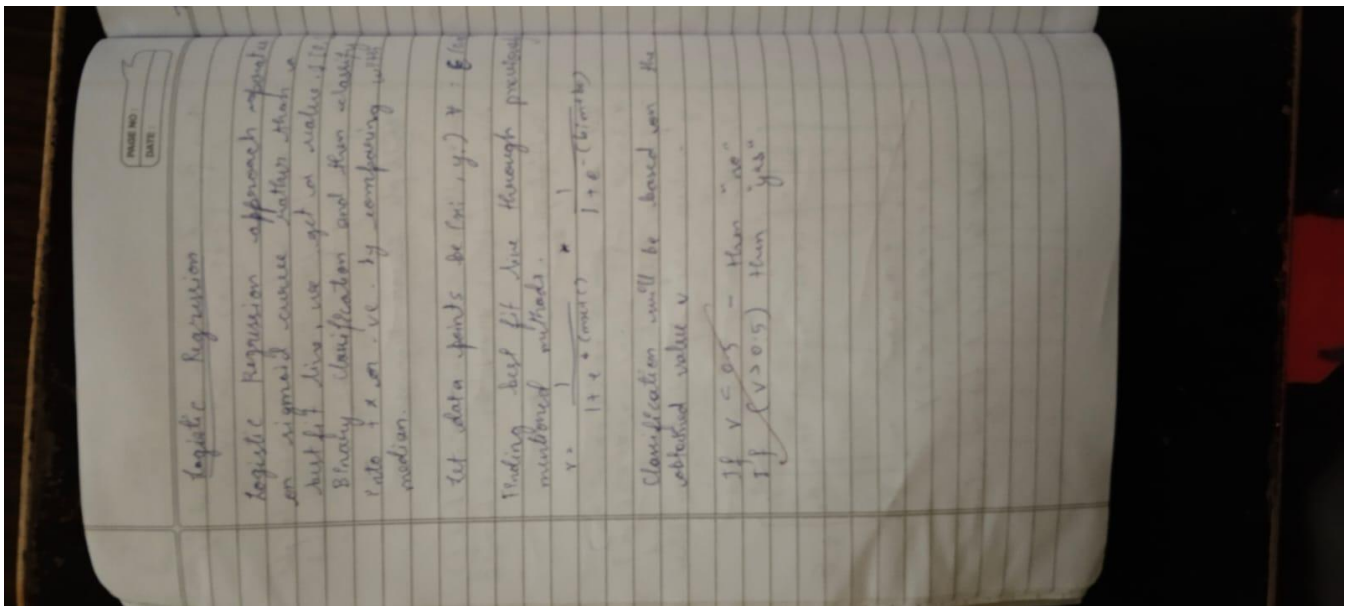 PAGE NO:
DATE
Logistic Regression
Logistic Regression approach
on sigmoid curve rather than a
best fit line, we get a value
Binary classification and then classify
into + x or ve. by comparing with
median.
Let data points be (xi, yi) ∀ i
Finding best fit line through previously
mentioned methods.
v = 1 / 1 + e (mx+c) 1 / 1 + e
Classification will be based on the
obtained value v
If v < 0.5 - then "no"
If (v > 0.5) then "yes"